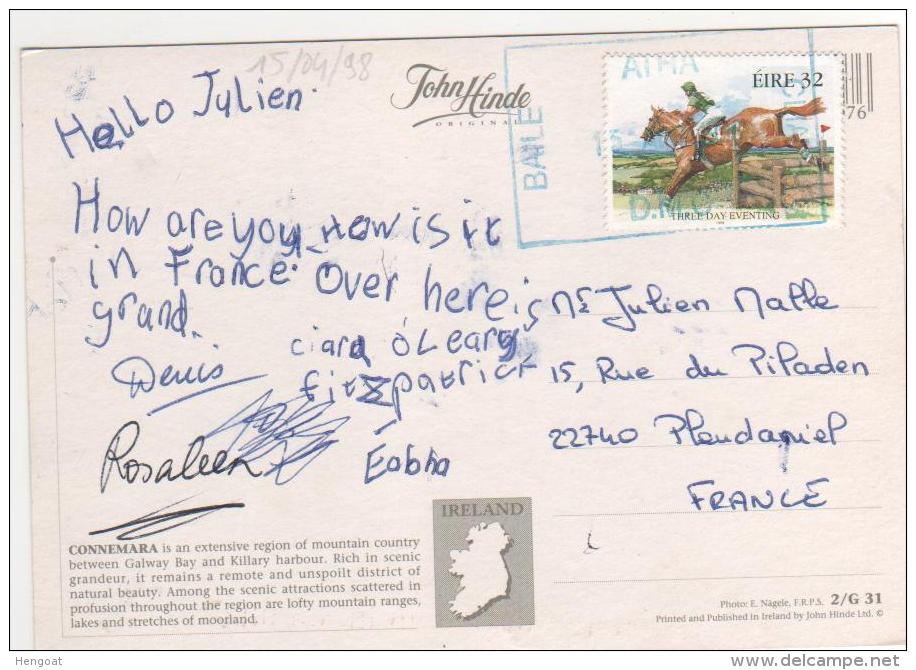 15/04/98
Hello Julien.
John Hinde
ORIGINAL
BAILE
ATHA
D.M.C
ÉIRE 32
THREE DAY EVENTING
76
How are you How is it
in France. Over here is
grand.
ciara O'Leary
fitzpatrick
Denis
Rosaleen
Éabha
Mr Julien Malle
15, Rue du Piladen
22740 Pleudaniel
FRANCE
IRELAND
CONNEMARA is an extensive region of mountain country
between Galway Bay and Killary harbour. Rich in scenic
grandeur, it remains a remote and unspoilt district of
natural beauty. Among the scenic attractions scattered in
profusion throughout the region are lofty mountain ranges,
lakes and stretches of moorland.
Photo: E. Nägele, F.R.P.S. 2/G 31
Printed and Published in Ireland by John Hinde Ltd. ©
Hengoat
www.delcampe.net